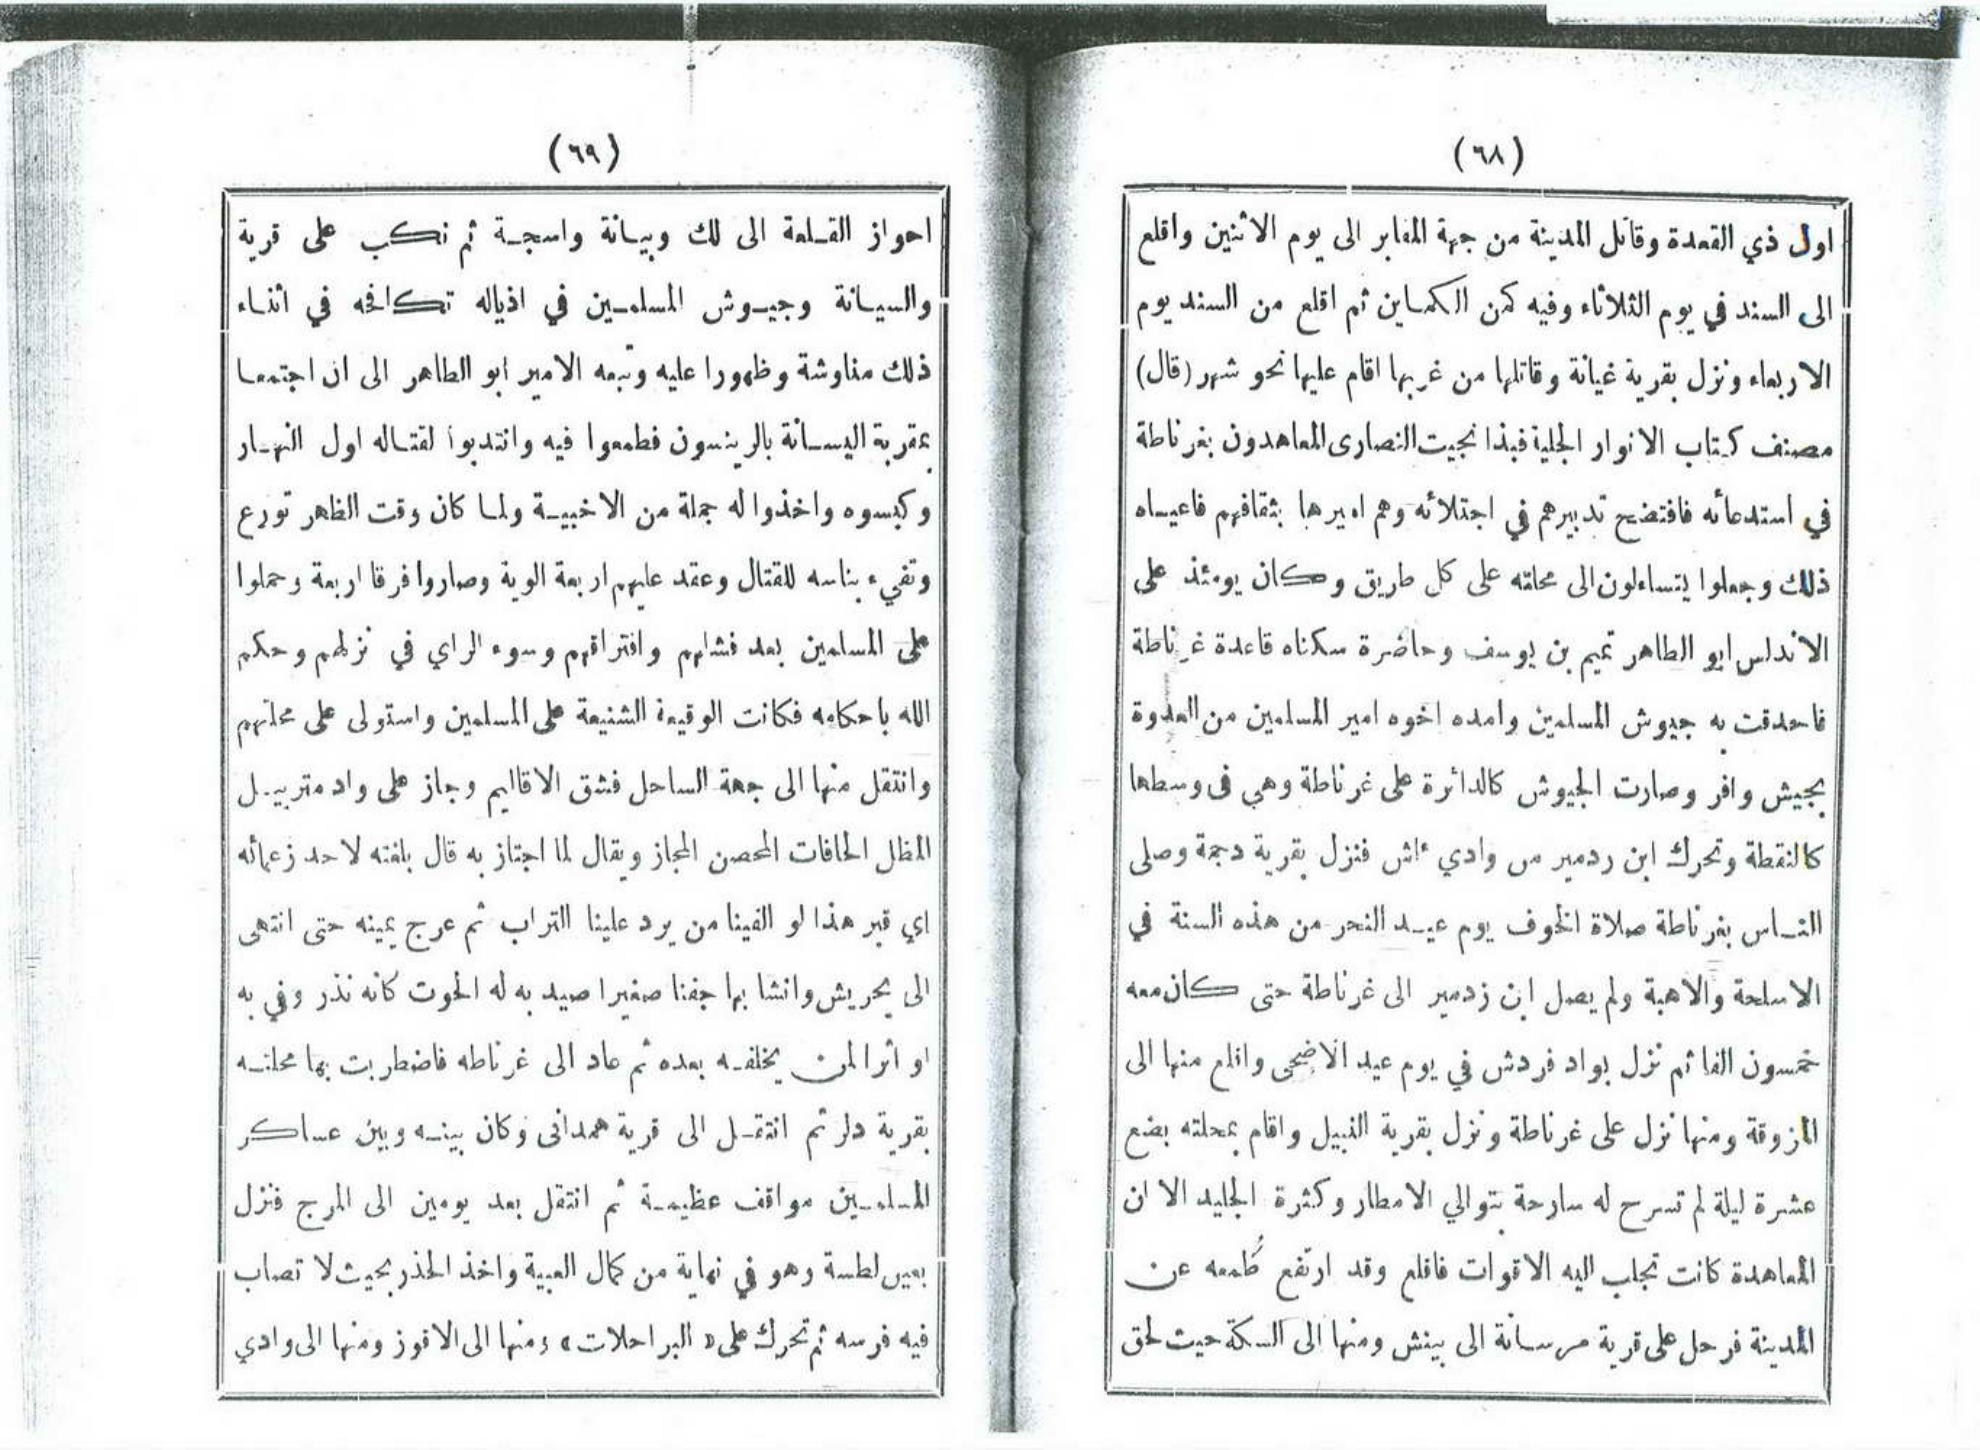 (٦٨)
اول ذي القعدة وقاتل المدينة من جهة المقابر الى يوم الاثنين واقلع
الى السند في يوم الثلاثاء وفيه كمن الكماين ثم اقلع من السند يوم
الاربعاء ونزل بقرية غيانة وقاتلها من غربها اقام عليها نحو شهر (قال)
مصنف كتاب الانوار الجلية فبذا نجيت النصارى المعاهدون بغرناطة
في استدعائه فافتضح تدبيرهم في اجتلائه وهم اميرها بثقافهم فاعياه
ذلك وجعلوا يتساءلون الى محلته على كل طريق وكان يومئذ على
الاندلس ابو الطاهر تميم بن يوسف وحاضرة سكناه قاعدة غرناطة
فاحدقت به جيوش المسلمين وامده اخوه امير المسلمين من العدوة
بجيش وافر وصارت الجيوش كالدائرة على غرناطة وهي في وسطها
كالنقطة وتحرك ابن ردمير من وادي ءاش فنزل بقرية دجمة وصلى
الناس بغرناطة صلاة الخوف يوم عيد النحر من هذه السنة في
الاسلحة والاهبة ولم يصل ابن زدمير الى غرناطة حتى كان معه
خمسون الفا ثم نزل بواد فردش في يوم عيد الاضحى واقلع منها الى
المزوقة ومنها نزل على غرناطة ونزل بقرية النبيل واقام بمحلته بضع
عشرة ليلة لم تسرح له سارحة بتوالي الامطار وكثرة الجليد الا ان
المعاهدة كانت تجلب اليه الاقوات فاقلع وقد ارتفع طُمعه عن
المدينة فرحل على قرية مرسانة الى بينش ومنها الى السكة حيث لحق
(٦٩)
احواز القلعة الى لك وبيانة واسجة ثم نكب على قرية
والسيانة وجيوش المسلمين في اذياله تكافحه في اثناء
ذلك مناوشة وظهورا عليه وتبعه الامير ابو الطاهر الى ان اجتمعا
بمقربة اليسانة بالرينسون فطمعوا فيه وانتدبوا لقتاله اول النهار
وكبسوه واخذوا له جملة من الاخبية ولما كان وقت الظهر تورع
وتفيء بناسه للقتال وعقد عليهم اربعة الوية وصاروا فرقا اربعة وحملوا
على المسلمين بعد فشلهم وافتراقهم وسوء الراي في نزلهم وحكم
الله باحكامه فكانت الوقيعة الشنيعة على المسلمين واستولى على محلتهم
وانتقل منها الى جهة الساحل فشق الاقاليم وجاز على واد متربيل
المظل الحافات المحصن المجاز ويقال لما اجتاز به قال بلغته لاحد زعمائه
اي قبر هذا لو الفينا من يرد علينا التراب ثم عرج يمينه حتى انتهى
الى بحريش وانشا بها جفنا صغيرا صيد به له الحوت كانه نذر وفي به
او اثرا لمن يخلفه بعده ثم عاد الى غرناطه فاضطربت بها محلته
بقرية دلر ثم انتقل الى قرية همدانى وكان بينه وبين عساكر
المسلمين مواقف عظيمة ثم انتقل بعد يومين الى المرج فنزل
بعين لطسة وهو في نهاية من كمال العبية واخذ الحذر بحيث لا تصاب
فيه فرسه ثم تحرك على «البراجلات» ومنها الى الاقوز ومنها الى وادي